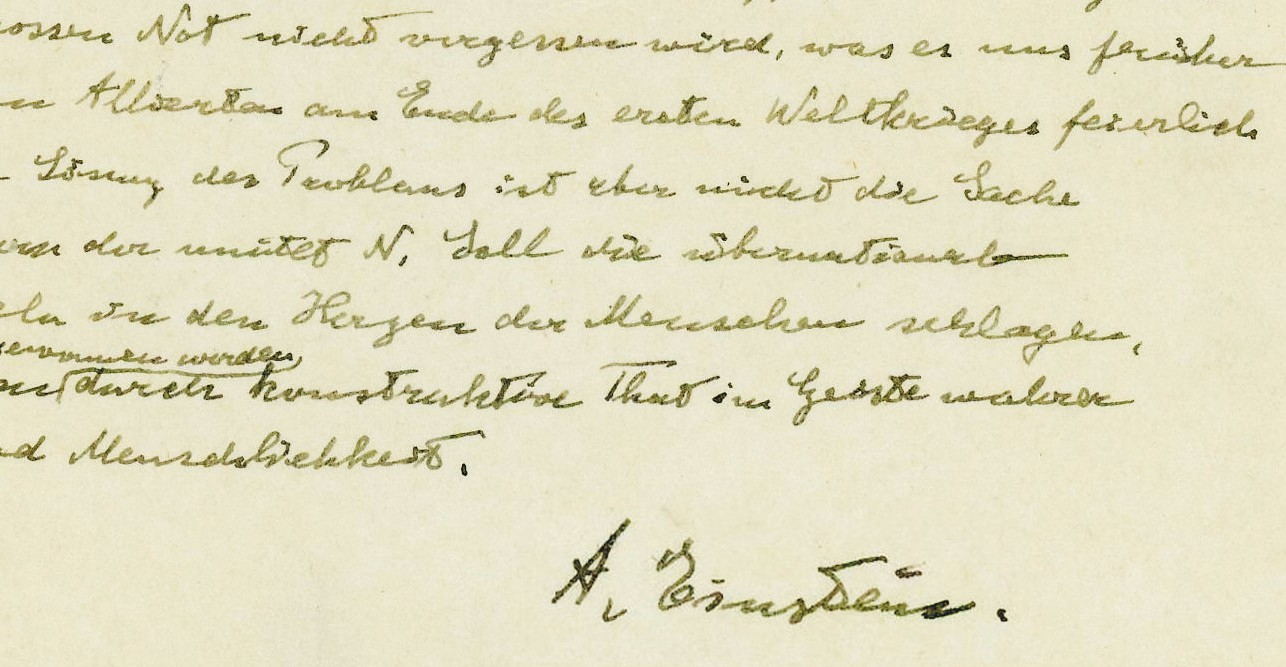 ossen Not nicht vergessen wird, was es uns früher
n Allierten am Ende des ersten Weltkrieges feierlich
Lösung des Problems ist aber nicht die Sache
ern der united N. Soll die übernationale
eln in den Herzen der Menschen schlagen,
gewonnen werden,
durch konstruktive That im Geiste wahrer
nd Menschlichkeit.
A. Einstein.